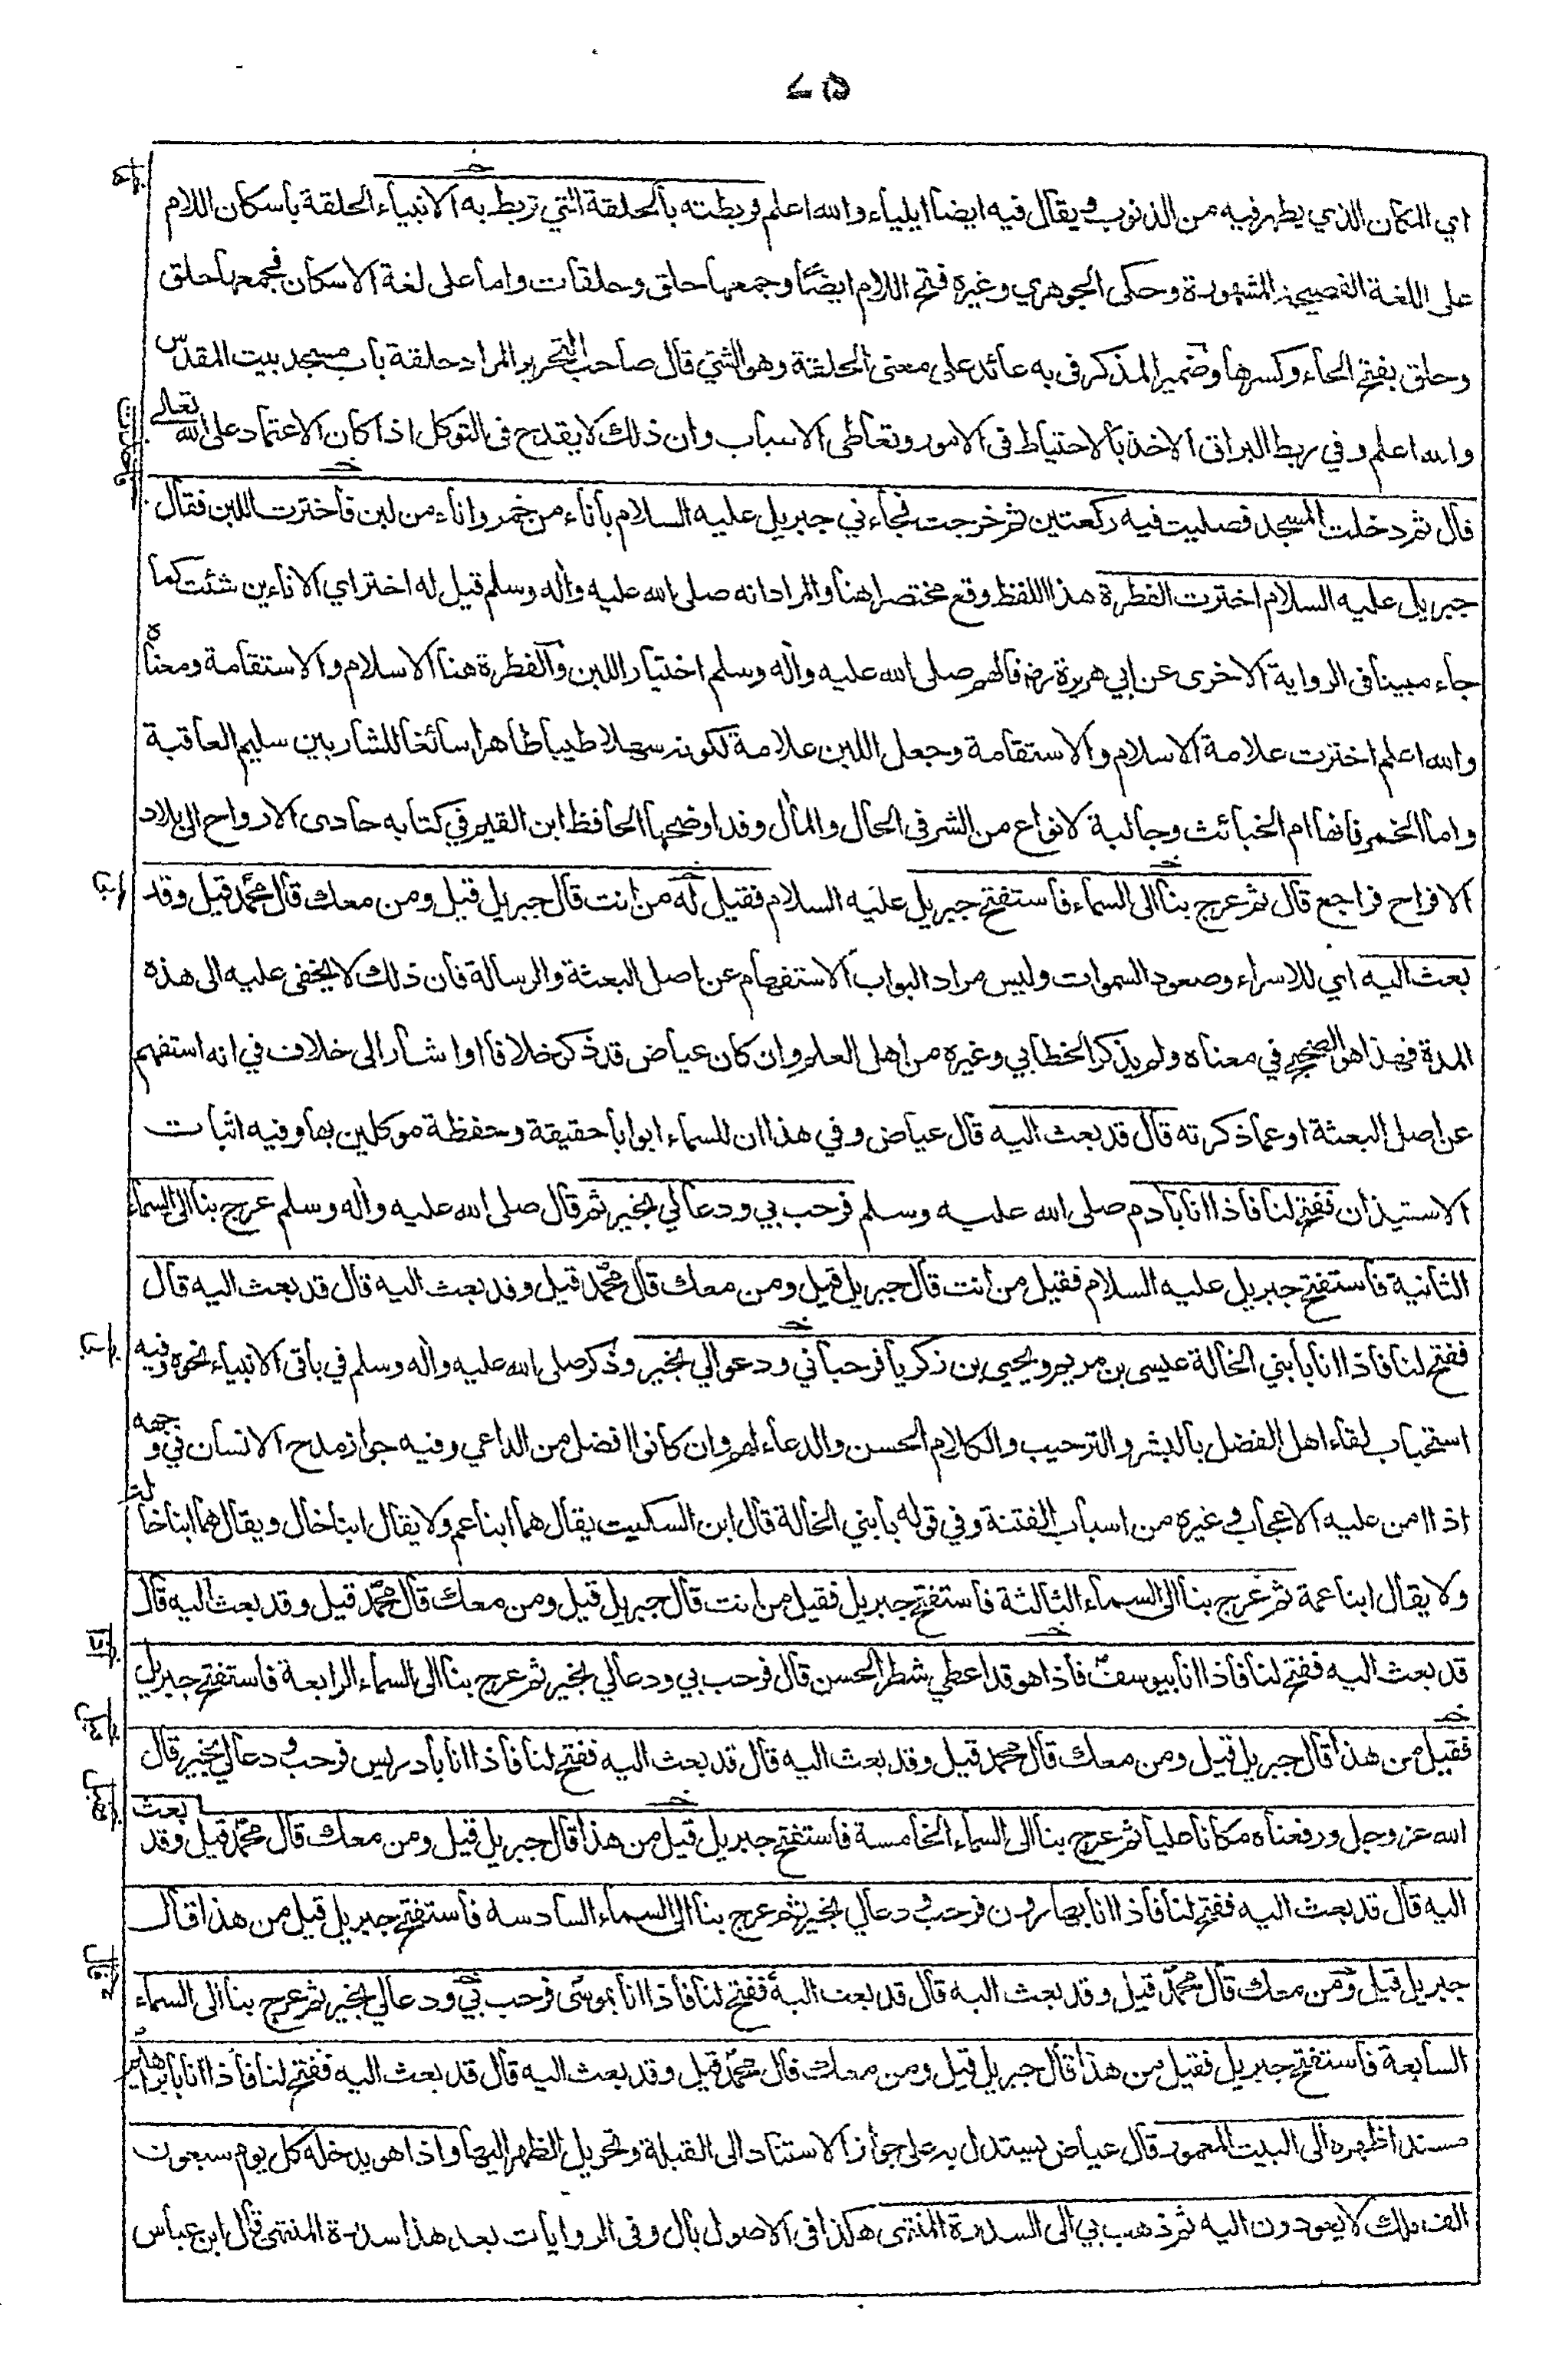 ٧٥
اي المكان الذي يطهر فيه من الذنوب ويقال فيه ايضا ايلياء والله اعلم فربطته بالحلقة التي تربط به الانبياء الحلقة باسكان اللام
على اللغة الفصيحة المشهورة وحكى الجوهري وغيره فتح اللام ايضًا وجمعها حلق وحلقات واما على لغة الاسكان فجمعها حلق
وحلق بفتح الحاء وكسرها وضمير المذكر فى به عائد على معنى الحلقة وهو الشئ قال صاحب التحرير المراد حلقة باب مسجد بيت المقدس
والله اعلم وفي ربط البراق الاخذ بالاحتياط فى الامور وتعاطى الاسباب وان ذلك لا يقدح فى التوكل اذا كان الاعتماد على الله تعالى
قال ثم دخلت المسجد فصليت فيه ركعتين ثم خرجت فجاءني جبريل عليه السلام باناء من خمر واناء من لبن فاخترت اللبن فقال
جبريل عليه السلام اخترت الفطرة هذا اللفظ وقع مختصرا هنا والمراد انه صلى الله عليه واله وسلم قيل له اختر اي الاناءين شئت كما
جاء مبينا فى الرواية الاخرى عن ابي هريرة رض فالهم صلى الله عليه واله وسلم اختيار اللبن والفطرة هنا الاسلام والاستقامة ومعناه
والله اعلم اخترت علامة الاسلام والاستقامة وجعل اللبن علامة لكونه سهلا طيبا طاهرا سائغا للشاربين سليم العاقبة
واما الخمر فانها ام الخبائث وجالبة لانواع من الشر فى الحال والمأل وقد اوضحها الحافظ ابن القيم في كتابه حادى الارواح الى بلاد
الافراح فراجع قال ثم عرج بنا الى السماء فاستفتح جبريل عليه السلام فقيل له من انت قال جبريل قيل ومن معك قال محمد قيل وقد
بعث اليه اي للاسراء وصعود السموات وليس مراد البواب الاستفهام عن اصل البعثة والرسالة فان ذلك لا يخفى عليه الى هذه
المدة فهذا هو الصحيح في معناه ولم يذكر الخطابي وغيره من اهل العلم وان كان عياض قد ذكر خلافا او اشار الى خلاف في انه استفهم
عن اصل البعثة او عما ذكرته قال قد بعث اليه قال عياض وفي هذا ان للسماء ابوابا حقيقة وحفظة موكلين بها وفيه اثبات
الاستيذان ففتح لنا فاذا انا بادم صلى الله عليه وسلم فرحب بي ودعا لي بخير ثم قال صلى الله عليه واله وسلم عرج بنا الى السماء
الثانية فاستفتح جبريل عليه السلام فقيل من انت قال جبريل قيل ومن معك قال محمد قيل وقد بعث اليه قال قد بعث اليه قال
ففتح لنا فاذا انا بابني الخالة عيسى بن مريم ويحيى بن زكريا فرحباني ودعوا لي بخير وذكر صلى الله عليه واله وسلم في باقى الانبياء نحوه وفيه
استحباب لقاء اهل الفضل بالبشر والترحيب والكلام الحسن والدعاء لهم وان كانوا افضل من الداعي وفيه جواز مدح الانسان في وجهه
اذا امن عليه الاعجاب وغيره من اسباب الفتنة وفي قوله بابني الخالة قال ابن السكيت يقال هما ابنا عم ولا يقال ابنا خال ويقال هما ابنا خالة
ولا يقال ابنا عمة ثم عرج بنا الى السماء الثالثة فاستفتح جبريل فقيل من انت قال جبريل قيل ومن معك قال محمد قيل وقد بعث اليه قال
قد بعث اليه ففتح لنا فاذا انا بيوسف فاذا هو قد اعطي شطر الحسن قال فرحب بي ودعا لي بخير ثم عرج بنا الى السماء الرابعة فاستفتح جبريل
فقيل من هذا قال جبريل قيل ومن معك قال محمد قيل وقد بعث اليه قال قد بعث اليه ففتح لنا فاذا انا بادريس فرحب ودعا لي بخير قال
الله عز وجل ورفعناه مكانا عليا ثم عرج بنا الى السماء الخامسة فاستفتح جبريل قيل من هذا قال جبريل قيل ومن معك قال محمد قيل وقد بعث
اليه قال قد بعث اليه ففتح لنا فاذا انا بهارون فرحب ودعا لي بخير ثم عرج بنا الى السماء السادسة فاستفتح جبريل قيل من هذا قال
جبريل قيل ومن معك قال محمد قيل وقد بعث اليه قال قد بعث اليه ففتح لنا فاذا انا بموسى فرحب بي ودعا لي بخير ثم عرج بنا الى السماء
السابعة فاستفتح جبريل فقيل من هذا قال جبريل قيل ومن معك قال محمد قيل وقد بعث اليه قال قد بعث اليه ففتح لنا فاذا انا بابراهيم
مسندا ظهره الى البيت المعمور قال عياض يستدل به على جواز الاستناد الى القبلة وتحويل الظهر اليها واذا هو يدخله كل يوم سبعون
الف ملك لا يعودون اليه ثم ذهب بي الى السدرة المنتهى هكذا فى الاصول بال وفى الروايات بعد هذا سدرة المنتهى قال ابن عباس